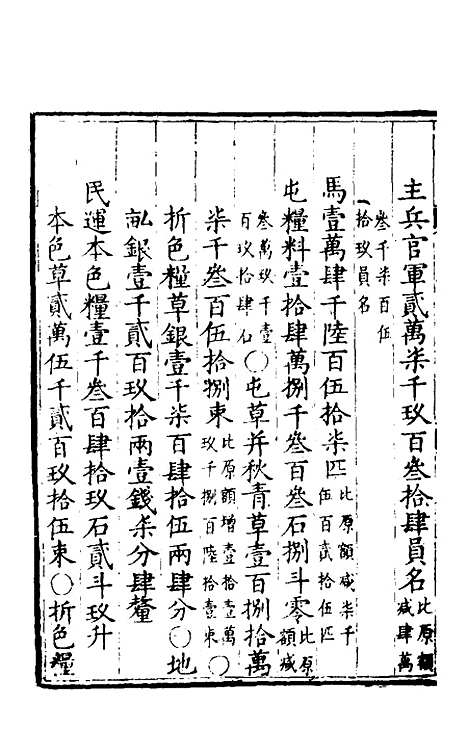 主兵官軍貳萬柒千玖百叁拾肆員名比原額減肆萬
叁千柒百伍拾玖員名
馬壹萬肆千陸百伍拾柒匹比原額減柒千伍百貳拾伍匹
屯糧料壹拾肆萬捌千叁百叁石捌斗零比原額減
叁萬玖千壹百玖拾肆石〇屯草并秋青草壹百捌拾萬
柒千叁百伍拾捌束比原額增壹拾萬玖千捌百陸拾壹束〇
折色糧草銀壹千柒百肆拾伍兩肆分〇地
畝銀壹千貳百玖拾兩壹錢柒分肆釐
民運本色糧壹千叁百肆拾玖石貳斗玖升
本色草貳萬伍千貳百玖拾伍束〇折色糧